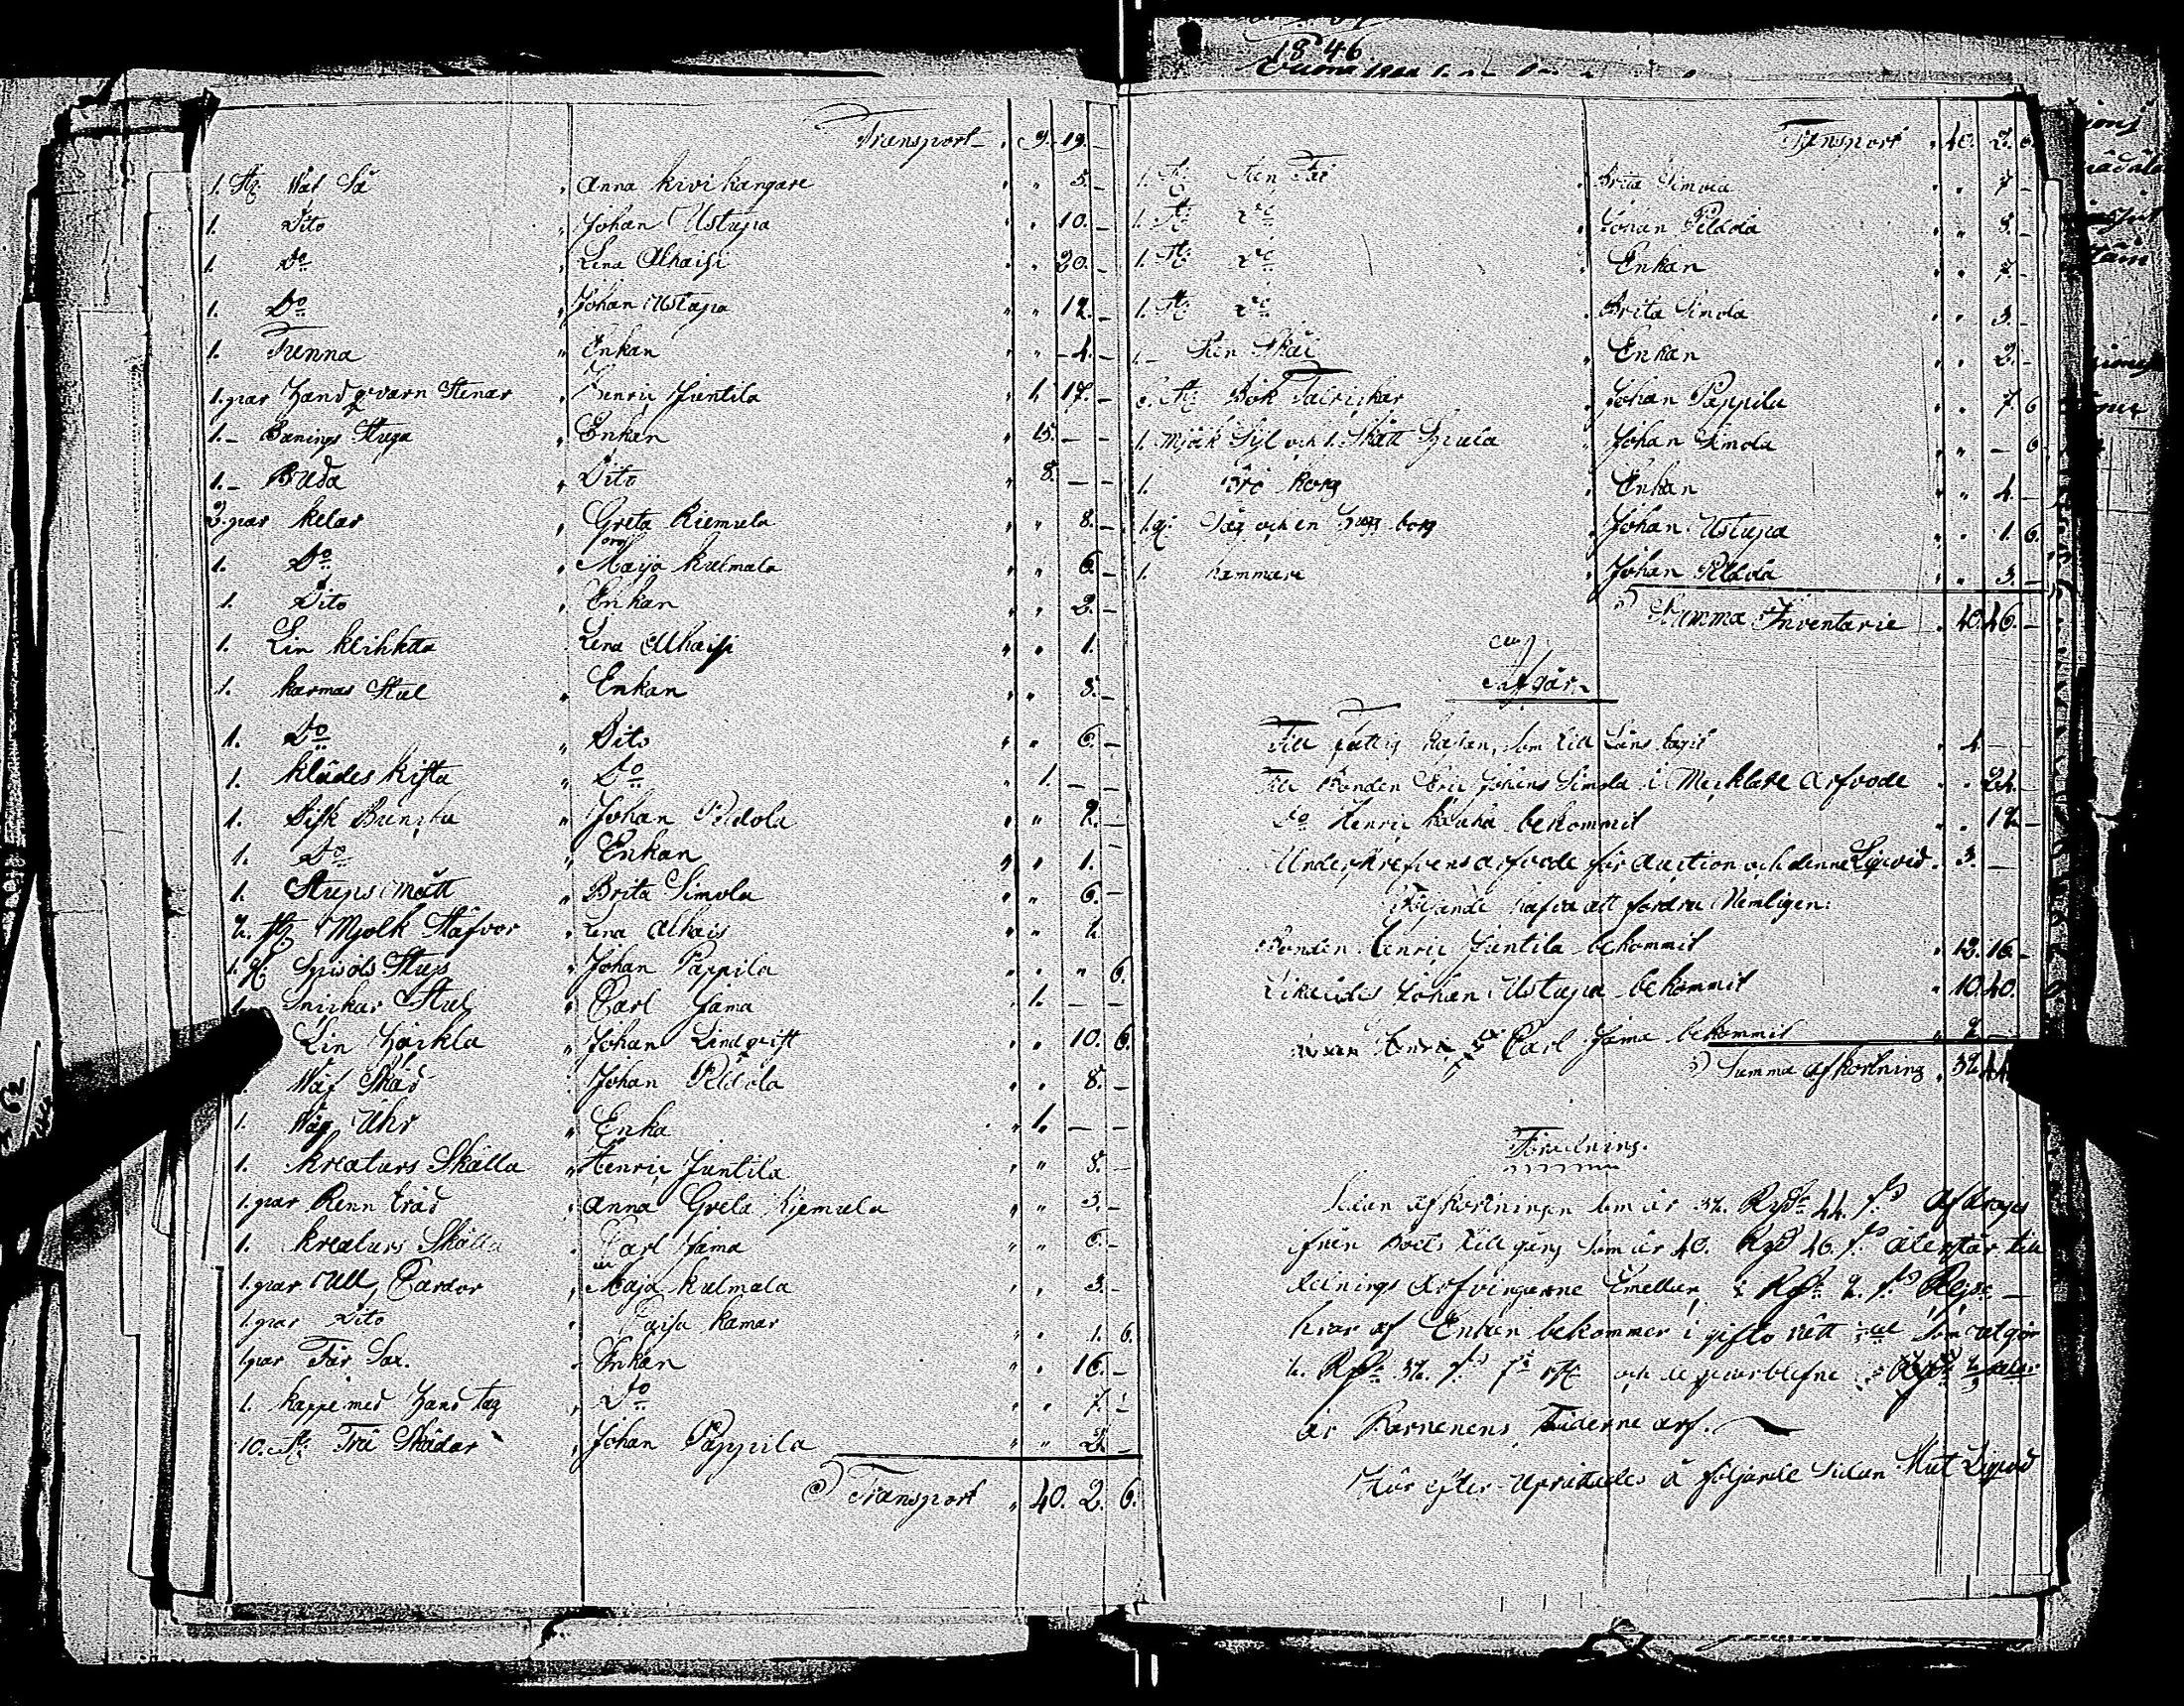 Transport " 9. 19. –
1. St. Wåt Så " Anna Kivikangare " " 5. –
1. Dito " Johan Ustupa " " 10. –
1. Do " Lena Alhaisi " " 20. –
1. Do " Johan Ustupa " " 12. –
1. Tunna " Enkan " " 4. –
1. par Handqvarn Stenar " Henric Juntila " 1. 17. –
1. – Bonings Stuga " Enkan " 15. – –
1. – Buda " Dito " 8. – –
2. par kelar " Greta Riemula " " 8. –
1. Do " Maija Kulmala " " 6. –
1. Dito " Enkan " " 2. –
1. Lin klihkta Lena Alhaisi " " 1.
1. karmas Stol " Enkan " " 8. –
1. Do " Dito " " 6. –
1. klädes kista " Do " 1. – –
1. Disk Buncka " Johan Peldola " " 2. –
1. Do " Enkan " " 1. –
1. Stups mått " Brita Simola " " 6. –
2. St. Mjölk Stäfvor " Lena Alhais " " 2.
1. St. Stups " Johan Pappila " " " 6.
1. Snickar Stol " Carl Jama " 1. – –
Lin Häckla " Johan Lindqvist " " 10. 6.
Wäf Skäd " Johan Peldola " " 8. –
1. Wäg Uhr " Enka " 1. – –
1. kreaturs Skälla " Henric Juntila " " 8. –
1. par Renn tråd " Anna Greta Riemula " " 3. –
1. kreaturs Skälla " Carl Jama " " 6. –
1. par Ull Cardor " Maja Kulmala " " 3. –
1. par Dito " Kamar " " 1. 6.
1. par Får Sax. " Enkan " " 16. –
1. kappe med Hand tag " Do " " 7. –
10. St. Trä Skådar " Johan Pappila " " 2. –
Transport " 40. 2. 6.
1846
Transport " 40. 2. 6.
1. St. Sten Fat " Brita Simola " " 7 –
1. St. Do " Johan Peldola " " 8. –
1. St. Do " Enkan " " 7 –
1. St. Do " Brita Simola " " 3. –
1. – Sten Skål " Enkan " " 2. –
6. St. Talrickar " Johan Pappila " " 7. 6
1. Mjölk Sil och 1. Skått Spula " Johan Simola " " – 6.
1. korg " Enkan " " 4. –
1. st. Såg och en borg " Johan Ustupa " " 1. 6.
1. hammare " Johan Peldola " " 3. –
Summa Inventarie " 40. 46. –
Afgår
Till fattig kassan, som till Låns tagit " 1. –
Till Bonden Eric Johans Simola i Mecklare arfvode " " 24. –
Do Henric bekommit " " 12. –
Underskrefvens arfvode för auction och denne Liqvid " 3. –
Följande hafva att fordra Nemligen:
Bonden Henric Juntila bekommit " 12. 16. –
Likaledes Johan Ustupa bekommit " 10. 40.
Carl Jama bekommit " 2 –
Summa afkortning " 32. 44
Fördelning.
Sedan afkortningen som är 32. Rgd 44. s. afdrages
ifrån Boets tillgång som är 40. Rgd 46. s. återstår till
delnings Arfvingarne Emellan
hvar af Enkan bekommer i gifto rätt som utgör
2. Rd. 32. s. och de qvarblefne
är Barnenens arf.
Här efter Uprättades å följande Sidan Slut Liqvid